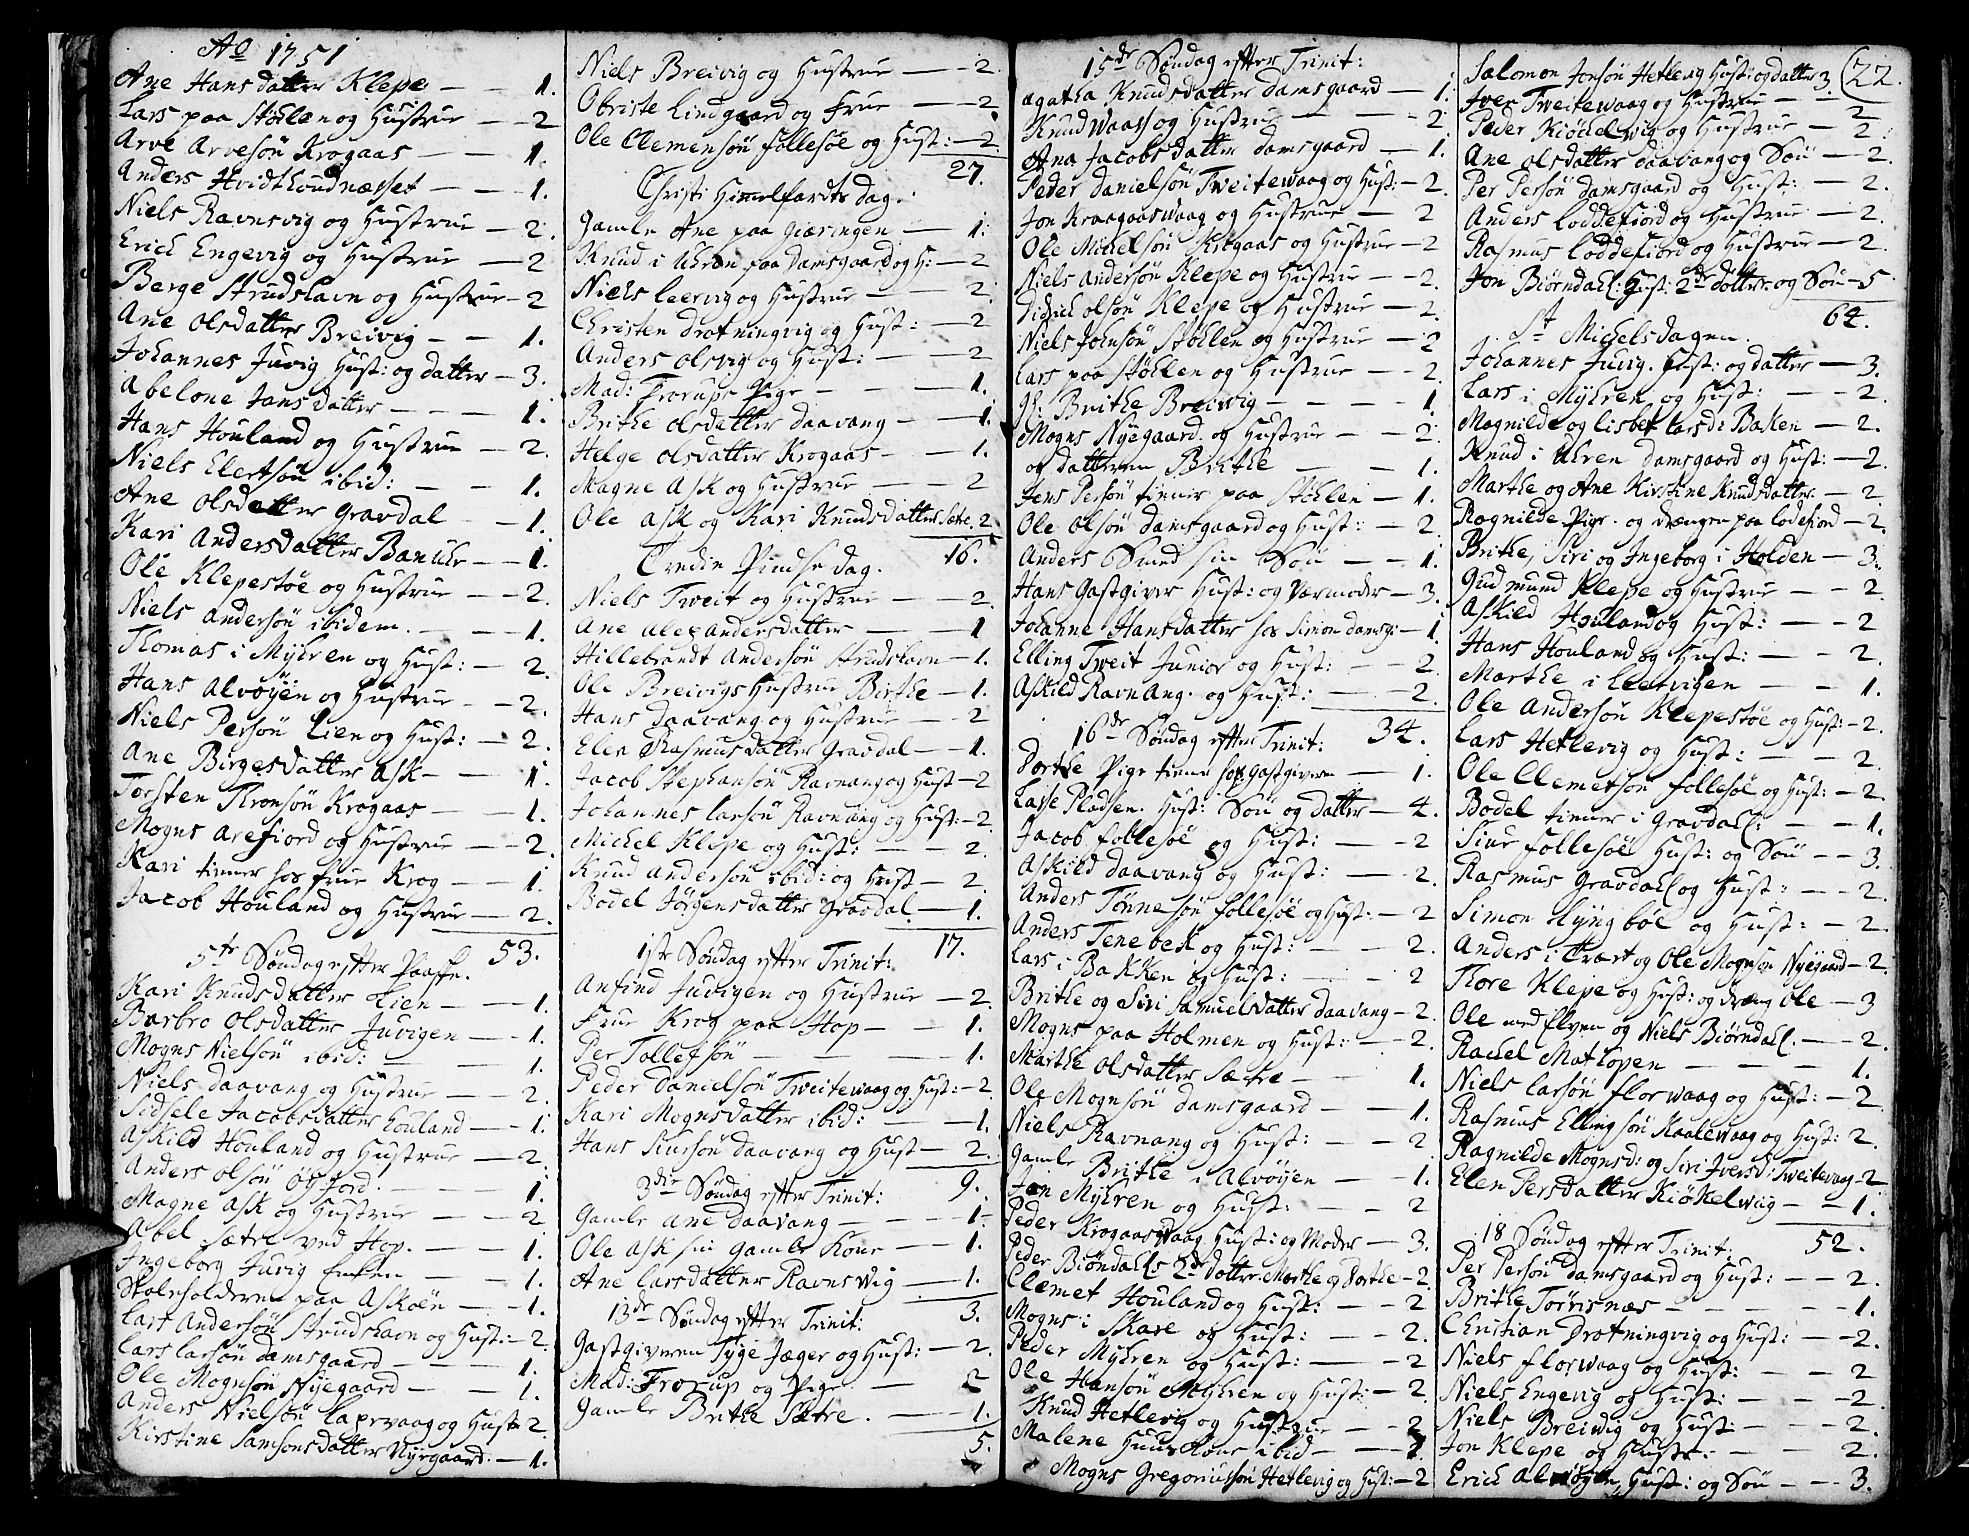 Ao 1751
Ane Hansdatter Klepe — — 1.
Lars paa Stöhlen og Hustrue — — 2
Arve Arvesön Krogaas — — 1.
Anders Hvidthoudnæsset — — 1.
Niels Ravnsvig og Hustrue — — 2.
Erich Engevig og Hustrue — — 2
Berge Strudshavn og Hustrue — 2
Ane Olsdatter Breivig — — 1.
Johannes Juvig Hust: og datter — 3.
Abelone Jansdatter — — — 1.
Hans Houland og Hustrue — 2.
Niels Elertsön ibid: — — 1.
Ane Olsdatter Gravdal — 1.
Kari Andersdatter — 1.
Ole Klepestöe og Hustrue — — 2.
Niels Andersön ibidem. — — 1.
Thomas i Myhren og Hust: — 2.
Hans Alvöyen og Hustrue — 2.
Niels Persön Lien og Hust: — 2.
Ane Birgesdatter Ask — — 1.
Torsten Thronsön Krogaas — — 1.
Mogns Arefiord og Hustrue — — 2.
Kari tiener hos frue Krog — — 1.
Jacob Houland og Hustrue — 2.
53.
5te Söndag efter Paaske.
Kari Knudsdatter Lien — — 1.
Barbro Olsdatter Juvigen — — 1.
Mogns Nielsön ibid: — — 1.
Niels Daavang og Hustrue — — 2.
Sidsele Jacobsdatter Houland — — 1.
Askild Houland og Hustrue — — 2.
Anders Olsön — — 1.
Magne Ask og Hustrue — — 2
Abel Sætre ved Hop. — — 1.
Ingeborg Juvig Enken — — 1.
Skoleholderen paa Askoen — — 1.
Lars Andersön Strudshavn og Hust: — 2.
Lars Larsön Damsgaard — — 1.
Ole Mognsön Nyegaard — — 1.
Anders Nielsön og Hustr 2.
Kirstine Samsonsdatter Nyegaard. — 1.
Niels Breivig og Hustrue — — 2.
Obriste Lindgaard og Frue — — 2
Ole Clemensön Follesöe og Hust: — 2.
27.
Christi Himelfardts Dag.
Gamle Ane paa — 1.
Knud i Uhren paa Damsgaard og H: — 2
Niels Leervig og Hustrue — — 2.
Christen Drotningvig og Hust: — 2
Anders Olsvig og Hust: — — 2
Mad: Frorups Pige — — — 1.
Brithe Olsdatter Daavang — — 1.
Helge Olsdatter Krogaas — — 1.
Magne Ask og Hustrue — — 2
Ole Ask og Kari Knudsdatter Sætre 2
16.
Tredie Pindse dag.
Niels Tweit og Hustrue — — 2.
Ane Alexandersdatter — — 1
Hillebrandt Andersön Strudshavn — 1.
Ole Breivigs Hustrue Birthe — 1.
Hans Daavang og Hustrue — — 2
Elen Rasmusdatter Gravdal — — 1.
Jacob Stephansön Ravnang og Hust — 2
Johannes Larsön Ravnang og Hust: — 2
Michel Klepe og Hust: — — 2.
Knud Andersön ibid: og Hust — 2.
Bodel Jörgensdatter Gravdal. — 1.
17.
1ste Söndag efter Trinit:
Anfind Juvigen og Hustrue — 2.
Frue Krog paa Hop — — 1.
Per Tollefsön — — — 1.
Peder Danielsön Tweitewaag og Hust: — 2
Kari Mognsdatter ibid: — — 1.
Hans Siursön Daavang og Hust — 2.
9.
3die Söndag efter Trinit:
Gamle Ane Daavang — — — 1.
Ole Ask sin Gamle Kone — 1.
Ane Larsdatter Ravnswig — 1.
3.
13de Söndag efter Trinit:
Gastgiveren Tyge Jæger og Hust: — 2.
Mad: Frorup og Pige — 2
Gamle Brithe Sætre. — — 1.
5.
15de Söndag efter Trinit:
Agatha Knudsdatter Damsgaard — 1.
Knud Waas og Hustrue — — 2
Ana Jacobsdatter Damsgaard — 1.
Peder Danielsön Tweitewaag og Hust: — 2.
Jon Kraagaaswaag og Hustrue — 2
Ole Michelsön Krogaas og Hustrue — 2
Niels Andersön Klepe og Hustrue — — 2.
Didrich Olsön Klepe og Hustrue — 2.
Niels Johnsön Stöhlen og Hustrue — 2
Lars paa Stöhlen og Hustrue — — 2.
Gl: Brithe Breiwig — — — 1
Mogns Nyegaard og Hustrue — — 2.
og datteren Brithe — — 1.
Jens Persön tiener paa Stöhlen — 1.
Ole Olsön Damsgaard og Hust: — 2.
Anders Smed sin Sön — — 1.
Hans Gastgiver Hust: og Værmoder — 3.
Johanne Hansdatter hos Simon Damsg: — 1
Elling Tweit Junior og Hust: — 2.
Askild Ravnang. og Hust: — 2.
34.
16de Söndag efter Trinit:
Dorthe Pige tiener hos Gastgiveren — 1.
Lasse Pladsen. Hust: Sön og datter — 4.
Jacob Follesöe og Hust: — — 2
Askild Daavang og Hust: — — 2.
Anders Tönnesön Follesöe og Hust: — 2
Anders Tenebek og Hust: — — 2.
Lars i Bakken og Hust: — 2
Brithe og Siri Samuelsdatter Daavang — 2.
Mogns paa Holmen og Hust: — 2.
Marthe Olsdatter Sætre — — 1.
Ole Mognsön Damsgaard — — 1.
Niels Ravnang og Hust: — — 2
Gamle Brithe i Alvöyen — — 1.
Jan Myhren og Hust: — — 2
Peder Krogaaswaag Hust: og Moder — 3.
Peder Biöndahls 2de dötter Marthe og Dorthe — 2
Clemet Houland og Hust: — — 2
Mogns i Skare og Hust: — — 2.
Peder Myhren og Hust: — — 2
Ole Hansön Myhren og Hust: — 2.
Knud Hetlevig og Hustrue — — 2
Malene Kone ibid — — 1.
Mogns Gregoriussön Hetlevig og Hust: — 2
22.
Salomon Jonsön Hetlevig Hust: og datter 3.
Iver Tweitewaag og Hustrue — — 2
Peder Kiöckelwig og Hustrue — 2.
Ane Olsdatter Daavang og Sön — 2.
Per Persön Damsgaard og Hust: — 2.
Anders Loddefiord og Hustrue — 2.
Rasmus Loddefiord og Hustrue — 2.
Jon Biörndahl: Hust: 2de döttre og Sön — 5
64.
St Michelsdagen.
Johannes Juvig. Hust: og datter — 3.
Lars i Myhren og Hust: — — 2.
Magnilde og Lisbet Larsd: Baken — 2.
Knud i Uhren Damsgaard og Hust: — 2.
Marthe og Ane Kirstine Knudsdatter — 2
Ragnilde Pige. og drengen paa Lodefiord — 2.
Brithe, Siri og Ingeborg i Holden — 3.
Gudmund Klepe og Hustrue — — 2.
Askild Houland og Hust: — — 2
Hans Houland og Hust: — — 2.
Marthe i Leervigen — — 1.
Ole Andersön Klepestöe og Hust: — 2.
Lars Hetlevig og Hust: — — 2.
Ole Clemetsön Follesöe og Hust: — 2.
Bodel tiener i Gravdahl: — — 1.
Siur Follesöe Hust: og Sön — — 3.
Rasmus Gravdahl og Hust: — — 2.
Simon Kyngböe og Hust: — — 2.
Anders i Træet og Ole Mognsön Nyegaard — 2.
Thore Klepe og Hust: og dræng Ole — 3
Ole ved Elven og Niels Biörndahl. — — 2.
Rachel Mathopen — — — 1.
Niels Larsön Florwaag og Hust: — 2.
Rasmus Ellingsön Kaalewaag og Hust: 2.
Ragnilde Mognsd: og Siri Iversd: Tweitevaag — 2.
Elen Persdatter Kiökelwig — — 1.
52.
18 Söndag efter Trinit:
Per Persön Damsgaard og Hust: — — 2.
Brithe Törrisnæs — — — — 1.
Christian Drotningvig og Hust: — — 2.
Niels Florwaag og Hust: — — 2
Niels Engevig og Hust: — — 2.
Niels Breiwig og Hust — — 2.
Jon Klepe og Hustr: — — 2.
Erich Alvöyen, Hust: og Sön — — 3.